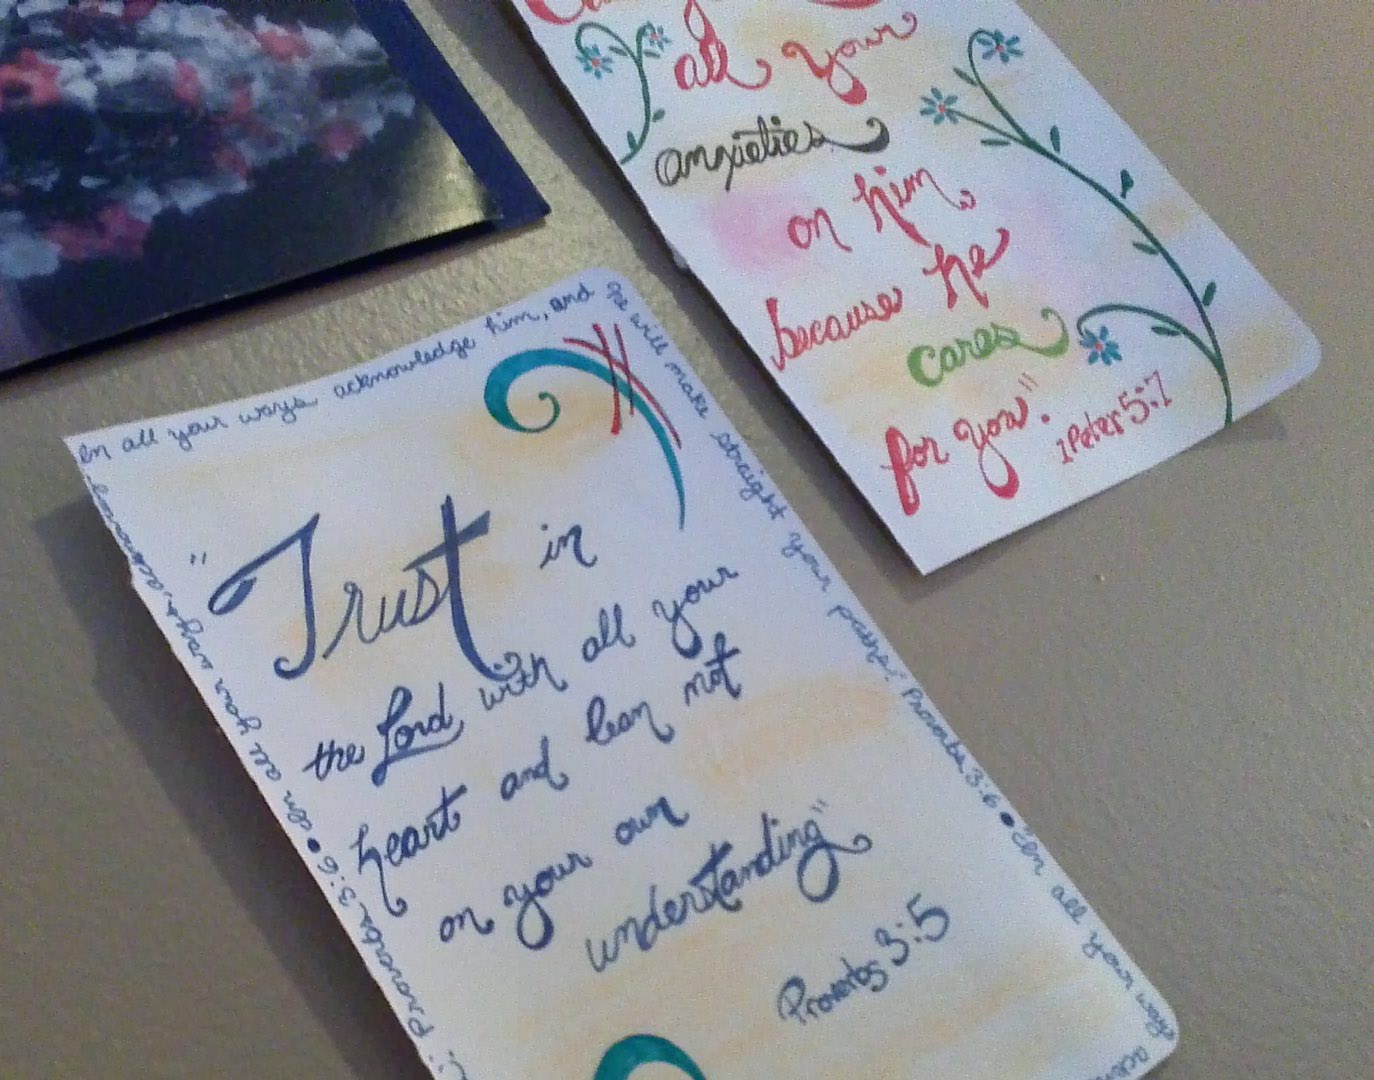 all your
anxieties
on him,
because he
cares
for you".
1 Peter 5:7
In all your ways acknowledge him, and he will make straight your paths." Proverbs 3:6 • In all your ways
"Trust in
the Lord, with all your
heart and lean not
on your own
understanding"
Proverbs 3:5
Proverbs 3:6 • In all your ways,